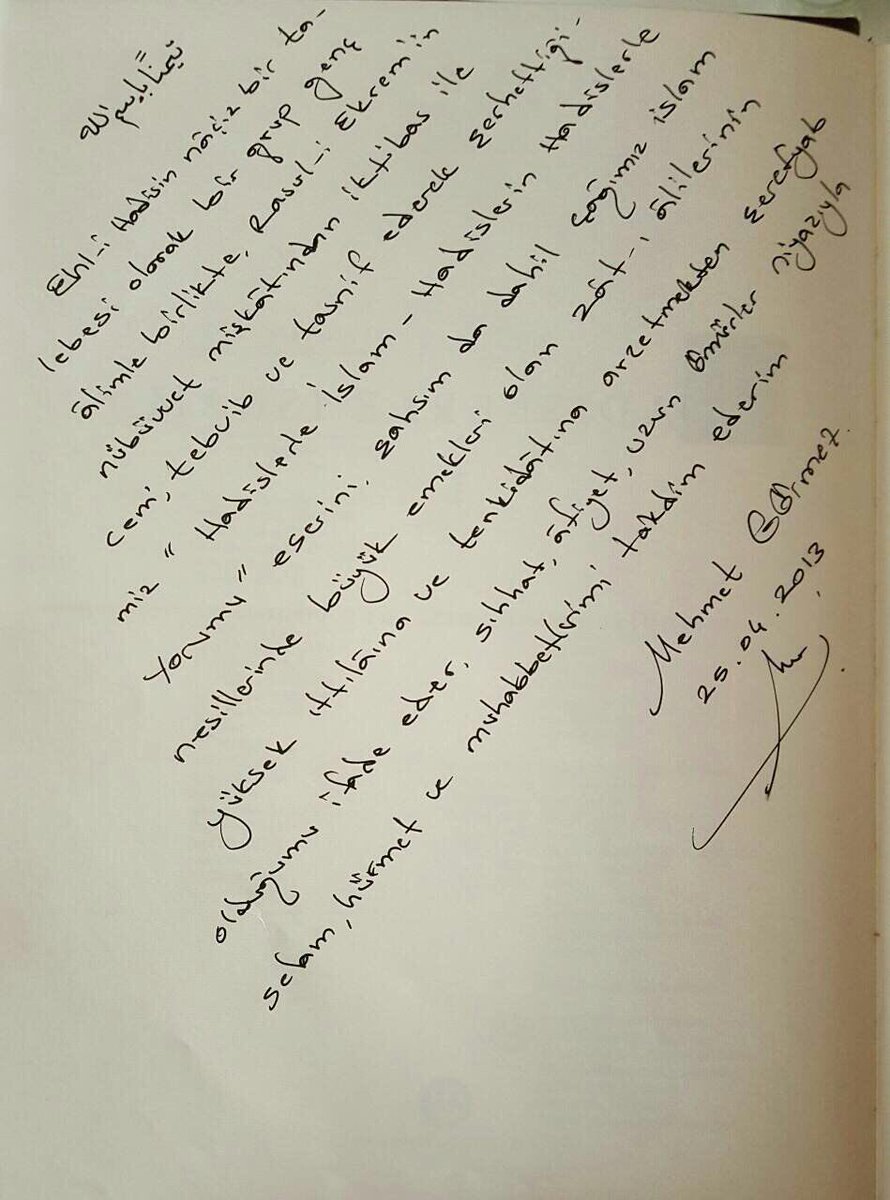 تيمناً باسم الله
Ehl-i Hadisin nâçiz bir ta-
lebesi olarak bir grup genç
âlimle birlikte, Rasul-i Ekrem'in
nübüvvet mişkâtından iktibas ile
cem', tebvib ve tasnif ederek şerhettiği-
miz " Hadislerle İslam - Hadislerin Hadislerle
Yorumu " eserini, şahsım da dahil çağımız islam
nesillerinde büyük emekleri olan zât-ı âlilerinin
yüksek ıttılâına ve tenkidâtına arzetmekten şerefyab
olduğumu ifade eder, sıhhat, âfiyet, uzun ömürler niyazıyla
selam, hürmet ve muhabbetlerimi takdim ederim
Mehmet Görmez
25.04.2013